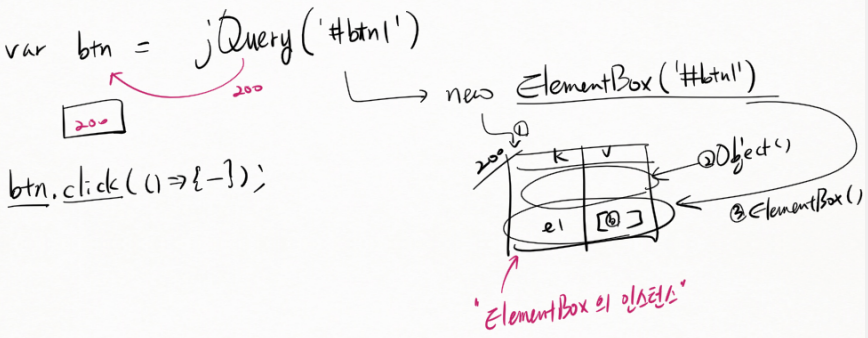 var btn = jQuery('#btn1')
200
200
new ElementBox('#btn1')
①
200
K V
②Object()
btn.click(()=>{-});
el [⓪]
③ElementBox()
"ElementBox의 인스턴스"